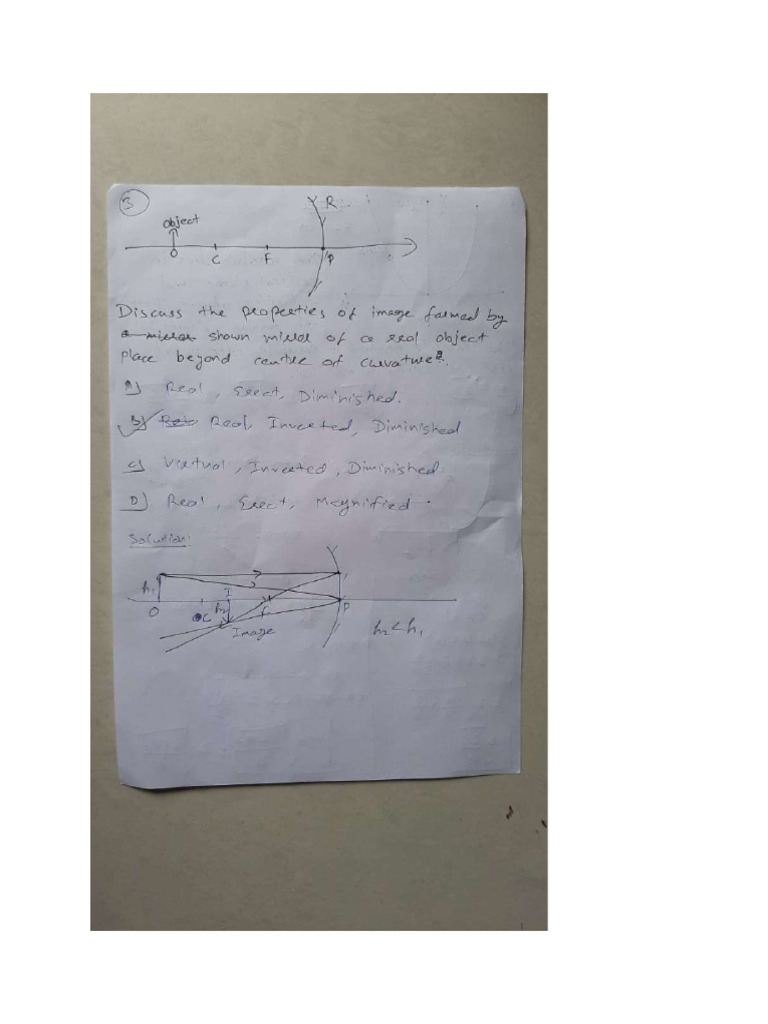 3
R
object
O C F P
Discuss the properties of image formed by
a mirror shown mirror of a real object
Place beyond centre of curvature?
A) Real, Erect, Diminished.
B) Rea Real, Inverted, Diminished
C) Virtual, Inverted, Diminished
D) Real, Erect, Magnified.
Solution:
h1 I
O C h2 F P
Image h2<h1